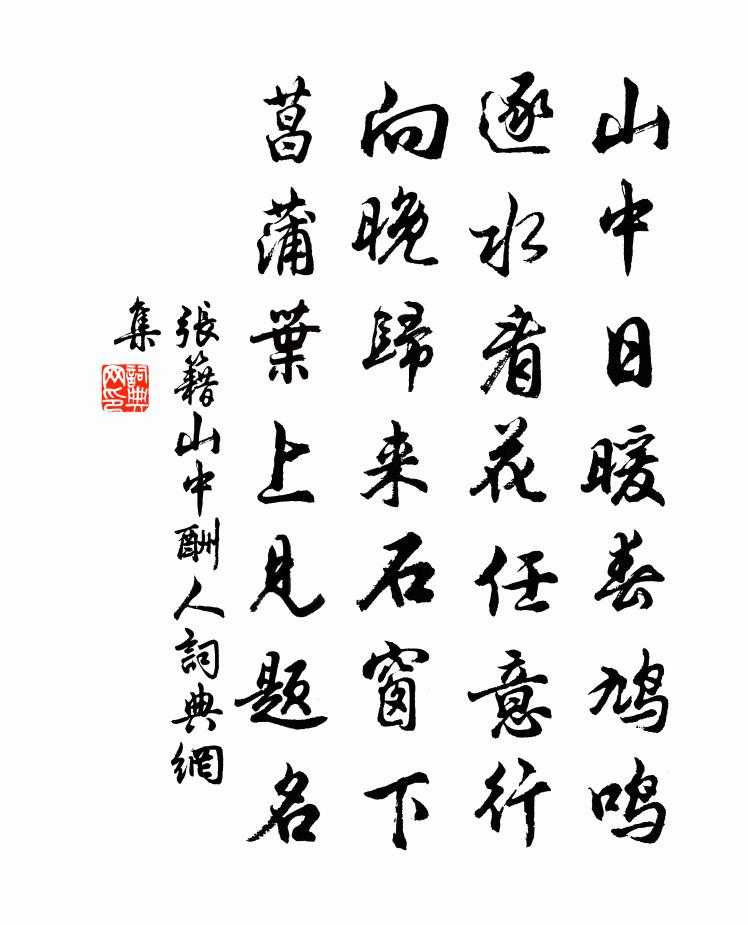 山中日暖春鸠鸣
逐水看花任意行
向晚歸来石窗下
菖蒲葉上见题名
張籍山中酬人詞典網
集
詞典网印